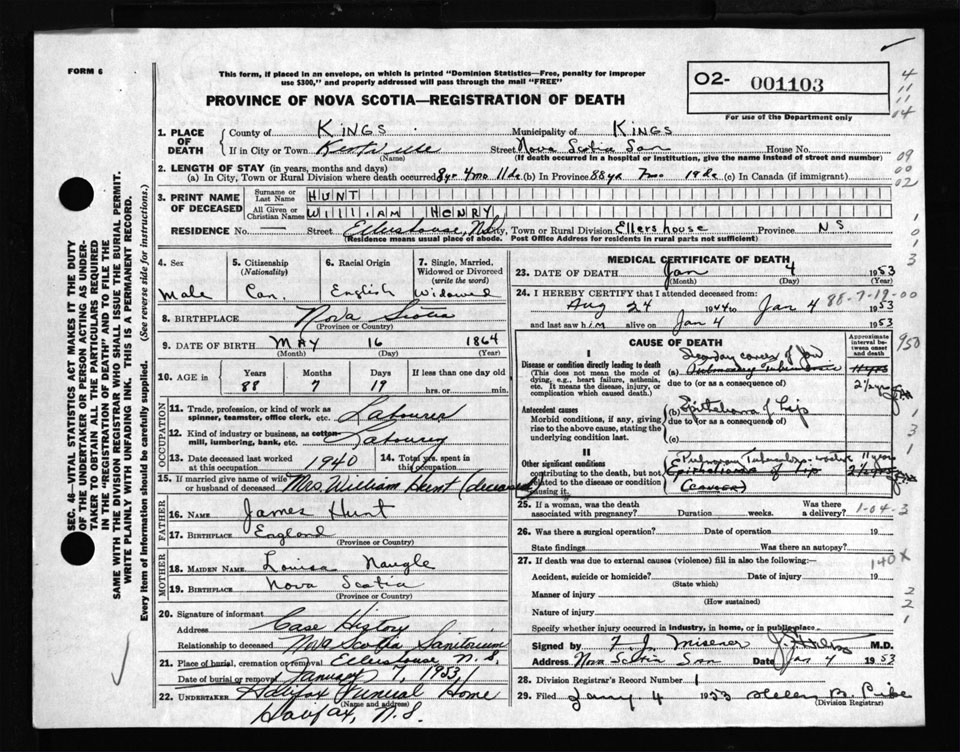 FORM 6
This form, if placed in an envelope, on which is printed "Dominion Statistics—Free, penalty for improper
use $300," and properly addressed will pass through the mail "FREE"
O2- 001103
For use of the Department only
PROVINCE OF NOVA SCOTIA—REGISTRATION OF DEATH
4
11
11
04
09
00
02
1
0
1
3
SEC. 46—VITAL STATISTICS ACT MAKES IT THE DUTY
OF THE UNDERTAKER OR PERSON ACTING AS UNDER-
TAKER TO OBTAIN ALL THE PARTICULARS REQUIRED
IN THE "REGISTRATION OF DEATH" AND TO FILE THE
SAME WITH THE DIVISION REGISTRAR WHO SHALL ISSUE THE BURIAL PERMIT.
WRITE PLAINLY WITH UNFADING INK. THIS IS A PERMANENT RECORD.
Every item of Information should be carefully supplied. (See reverse side for instructions.)
1. PLACE OF DEATH County of KINGS Municipality of KINGS
If in City or Town Kentville Street Nova Scotia San House No.
(Name) (If death occurred in a hospital or institution, give the name instead of street and number)
2. LENGTH OF STAY (in years, months and days)
(a) In City, Town or Rural Division where death occurred 8 yr 4 mo 11 ds (b) In Province 88 yr 7 mo 19 ds (c) In Canada (if immigrant)
3. PRINT NAME OF DECEASED Surname or Last Name HUNT
All Given or Christian Names WILLIAM HENRY
RESIDENCE No. — Street Ellershouse, N.S. City, Town or Rural Division Ellershouse Province N S.
(Residence means usual place of abode. Post Office Address for residents in rural parts not sufficient)
4. Sex Male
5. Citizenship (Nationality) Can.
6. Racial Origin English
7. Single, Married, Widowed or Divorced (write the word) Widowed
8. BIRTHPLACE Nova Scotia
(Province or Country)
9. DATE OF BIRTH MAY 16 1864
(Month) (Day) (Year)
10. AGE in Years 88 Months 7 Days 19 If less than one day old hrs. or min.
OCCUPATION
11. Trade, profession, or kind of work as spinner, teamster, office clerk, etc. Labourer
12. Kind of industry or business, as cotton mill, lumbering, bank, etc. Labouring
13. Date deceased last worked at this occupation 1940 14. Total yrs. spent in this occupation
15. If married give name of wife or husband of deceased Mrs William Hunt (deceased)
FATHER
16. NAME James Hunt
17. BIRTHPLACE England
(Province or Country)
MOTHER
18. MAIDEN NAME Louisa Naugle
19. BIRTHPLACE Nova Scotia
(Province or Country)
20. Signature of informant
Address Case History
Relationship to deceased Nova Scotia Sanitorium
21. Place of burial, cremation or removal Ellershouse N.S.
Date of burial or removal January 7, 1953
22. UNDERTAKER Halifax Funeral Home
(Name and address)
Halifax, N.S.
MEDICAL CERTIFICATE OF DEATH
23. DATE OF DEATH Jan 4 1953
(Month) (Day)
24. I HEREBY CERTIFY that I attended deceased from:
Aug 24 1944 to Jan 4 1953
88-7-19-00
and last saw him alive on Jan 4 1953
CAUSE OF DEATH
Approximate interval between onset and death
950
I
Disease or condition directly leading to death
(This does not mean the mode of dying, e.g., heart failure, asthenia, etc. It means the disease, injury, or complication which caused death.)
(a) Secondary cancer of Jaw
Pulmonary Tuberculosis 11 yrs
due to (or as a consequence of) 2½ yrs
Antecedent causes
Morbid conditions, if any, giving rise to the above cause, stating the underlying condition last.
(b) Epithelioma of Lip
due to (or as a consequence of)
(c)
1
3
1
II
Other significant conditions contributing to the death, but not related to the disease or condition causing it.
Pulmonary Tuberculosis 11 years
Epithelioma of Lip 2½ yrs
(Cancer)
25. If a woman, was the death associated with pregnancy? Duration weeks. Was there a delivery?
1-04-3
26. Was there a surgical operation? Date of operation 19
State findings Was there an autopsy?
27. If death was due to external causes (violence) fill in also the following:—
140 X
Accident, suicide or homicide? Date of injury 19
(State which)
Manner of injury
(How sustained)
Nature of injury
2
2
1
Specify whether injury occurred in industry, in home, or in public place
Signed by F. J. Misener M.D.
Address Nova Scotia San Date Jan 4 1953
28. Division Registrar's Record Number 1
29. Filed Jany 4 1953 Helen B.
(Division Registrar)